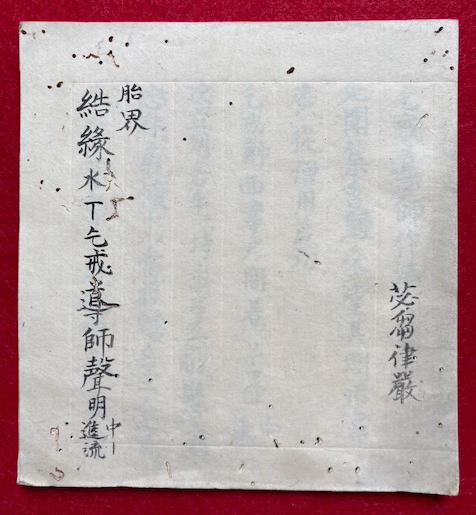 苾芻律嚴
胎界
結緣水丁乞戒導師聲明
中丨
進流